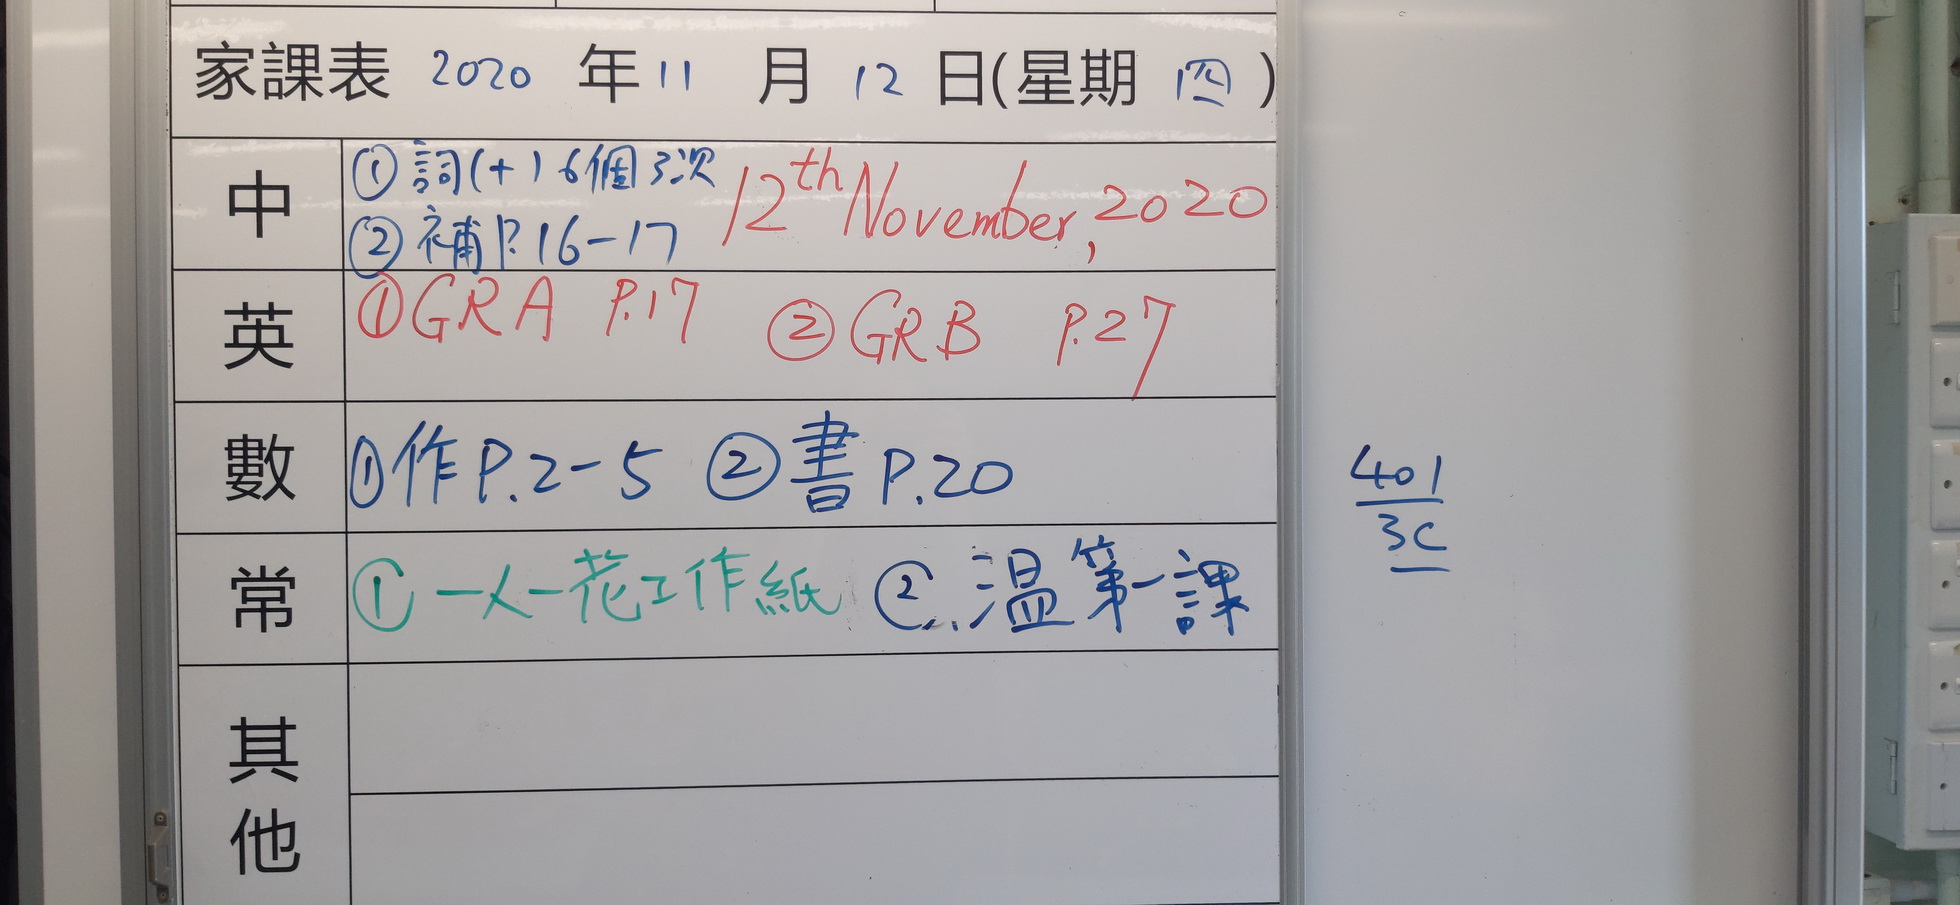 家課表 2020 年 11 月 12 日(星期 四 )
中
① 詞(十) 6個3次
② 補 P.16-17
12th November, 2020
英
① GRA P.17 ② GRB P.27
數
① 作 P.2-5 ② 書 P.20
常
① 一人一花工作紙 ② 溫第一課
其他
401
3C